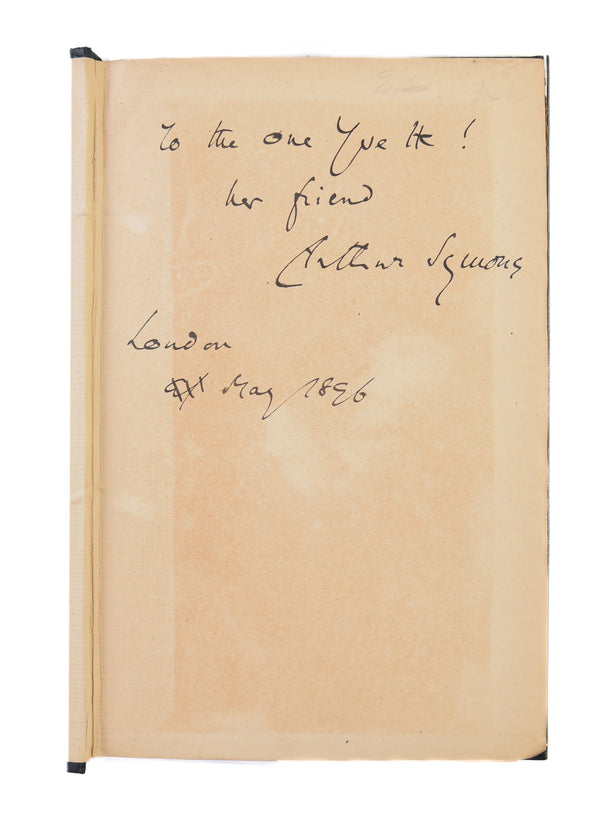 To the one Yvette!
her friend
Arthur Symons
London
May 1896